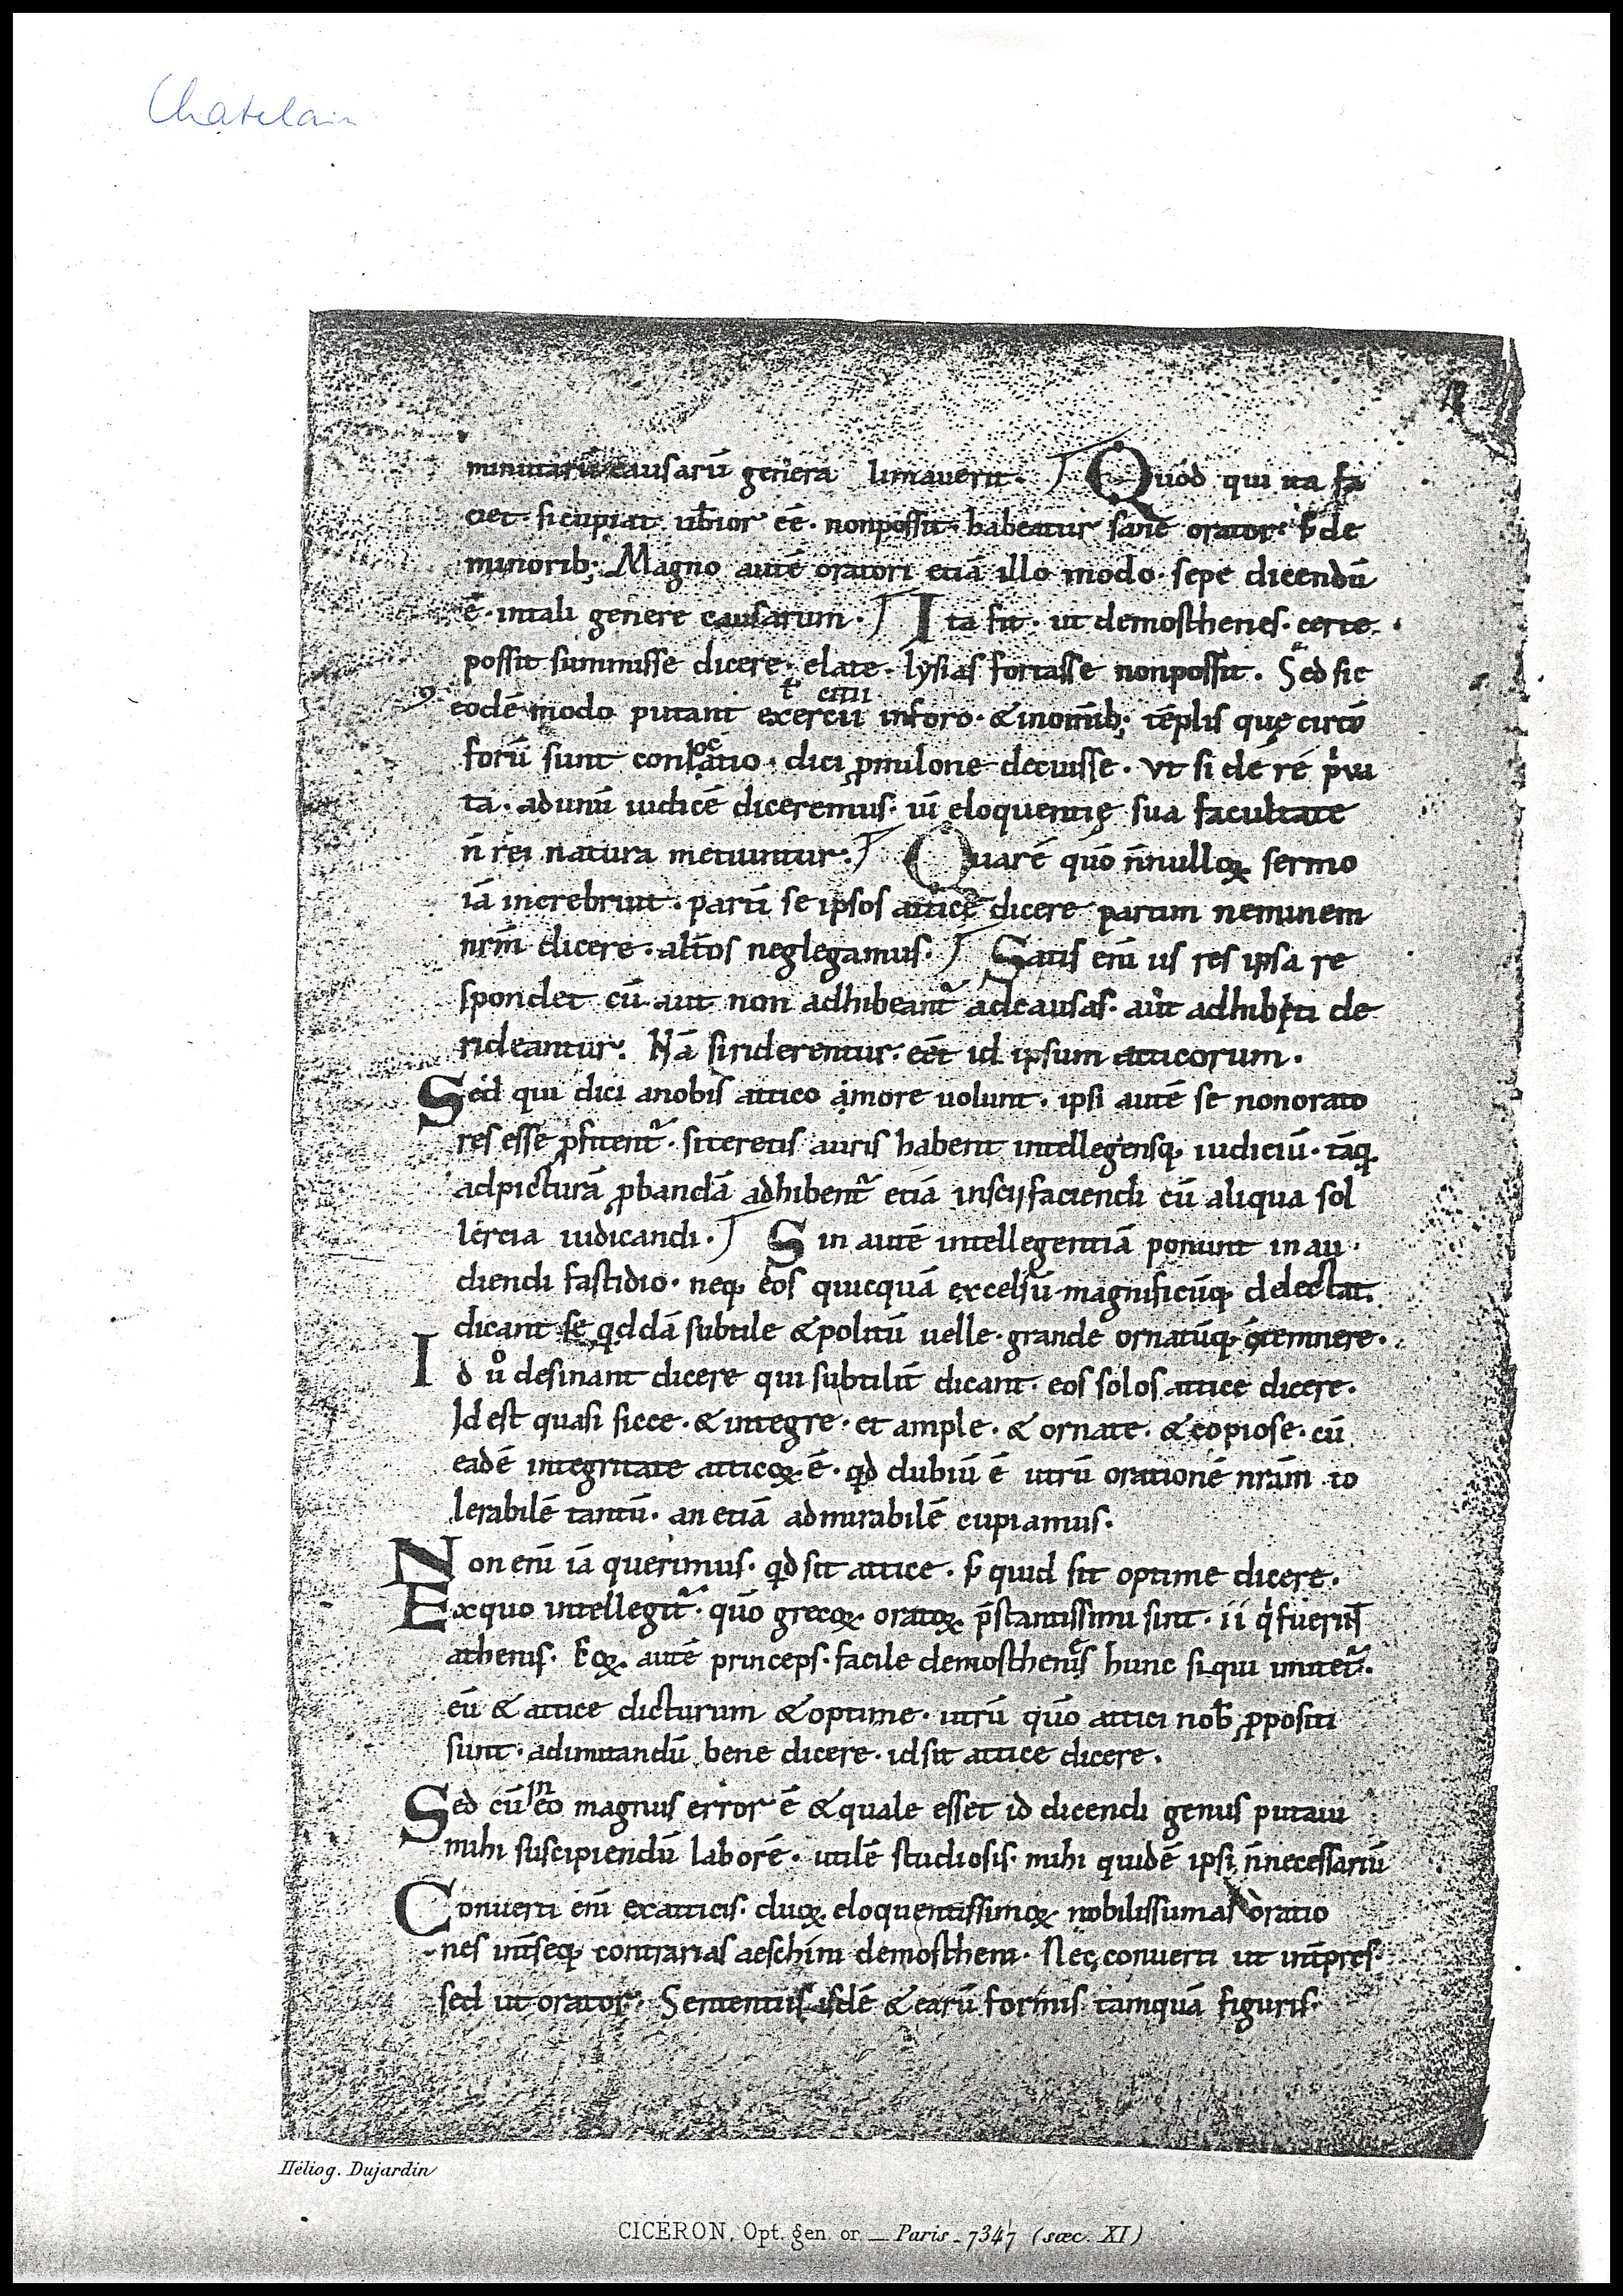 Chatelain
minutarū causarū genera limauerit. Quod qui ita fa
ciet. si cupiat ub̄ior eē. non possit. habeatur sane orator. s; de
minorib; Magno autē oratori etiā illo modo. sepe dicendū
ē. in tali genere causarum. Ita fit. ut demosthenes. certe.
possit summisse dicere. elate. lysias fortasse non possit. Sed sic
eodē modo putant exercitū in foro. & in omīb; tēplis quę circū
forū sunt conlocatio. dici ꝓ milone decuisse. vt si de re p̍ua
ta. ad unū iudicē diceremus. ūi eloquentię sua facultate
n̄ rei natura metiuntur. Quare qūo n̄nulloꝝ sermo
iā increbruit. partī se ipsos attice dicere partim neminem
nrm̄ dicere. alt̄os neglegamus. Satis eni̅ iis res ipsa re
spondet cū aut non adhibeant̄ ad causas. aut adhibiti de
rideantur. Nā si riderentur. eēt id ipsum atticorum.
Sed qui dici a nobis attico amore uolunt. ipsi autē se non orato
res esse ꝓfitent̄. si teretis auris habent intellegensq; iudiciū. tāq;
ad picturā ꝓbandā adhibent̄ etiā inscij faciendi cū aliqua sol
lercia iudicandi. Sin autē intellegentiā ponunt in au
diendi fastidio. neq; eos quicquā excelsū magnificūq; delectat.
dicant se qddā subtile & politū uelle. grande ornatūq; ɔtemnere.
Id ūo desinant dicere qui subtilit̄ dicant. eos solos attice dicere.
Id est quasi sicce. & integre. et ample. & ornate. & copiose. cū
eadē integritate atticoꝝ. ē. qd dubiū ē utrū orationē nrām to
lerabilē tantū. an etiā admirabilē cupiamus.
Non eni̅ iā querimus. qd sit attice. s; quid sit optime dicere.
Ex quo intellegit̄. qūo grecoꝝ oratoꝝ p̄stantissimi sint. ii q̍ fuerīt
athenis. Eoꝝ autē princeps. facile demosthenes hunc si qui imitet̄.
eū & attice dicturum & optime. utrū qūo attici nob̄ ꝓpositi
sunt. ad imitandū bene dicere. id sit attice dicere.
Sed cū in eo magnus error ē & quale esset id dicendi genus putaui
mihi suscipiendū laborē. utilē studiosis. mihi quidē ipsi n̄ necessariū
Conuerti eni̅ ex atticis. duoꝝ eloquentissimoꝝ nobilissimas oratio
nes int̄ seq; contrarias aeschini demostheni. Nec conuerti ut int̄pres.
sed ut orator. Sententiis isdē & earū formis tamquā figuris.
Héliog. Dujardin
CICÉRON, Opt. gen. or. — Paris. 7347 (sæc. XI)